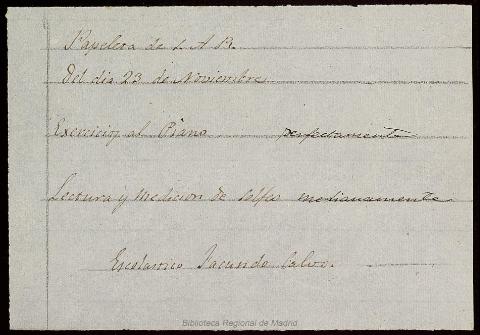 Papeleta de L. A. B.
del dia 23 de Noviembre
Exercicios al Piano perfectamente
Lectura y medicion de Solfeo medianamente
Escolastico Facundo Calvo.
Biblioteca Regional de Madrid